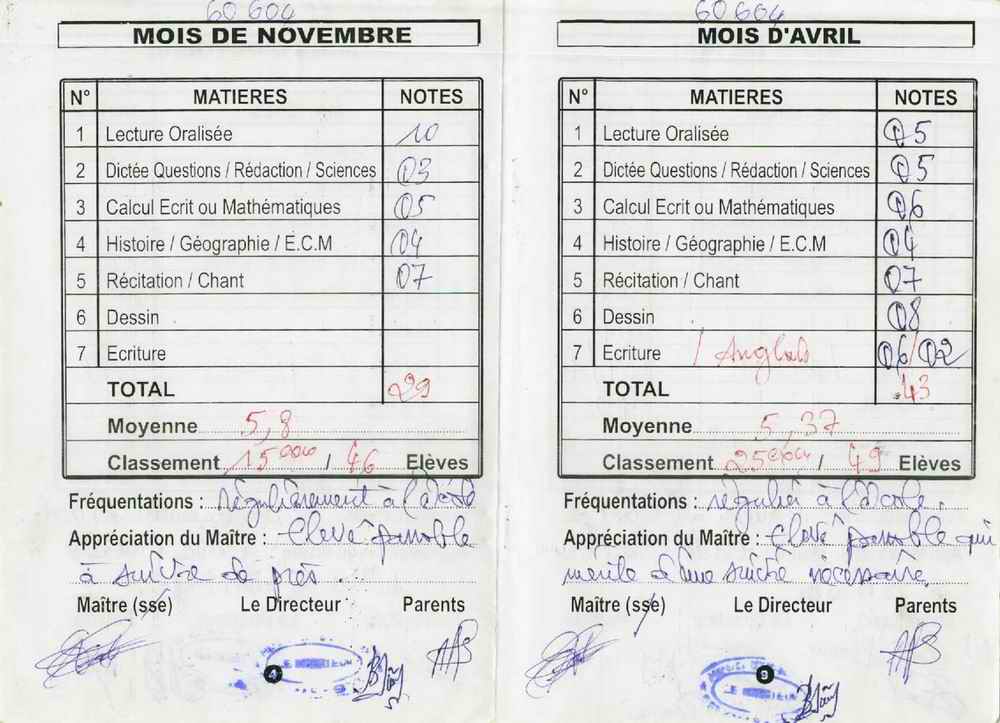 60 604
MOIS DE NOVEMBRE
N° MATIERES NOTES
1 Lecture Oralisée 10
2 Dictée Questions / Rédaction / Sciences 03
3 Calcul Ecrit ou Mathématiques 05
4 Histoire / Géographie / E.C.M 04
5 Récitation / Chant 07
6 Dessin
7 Ecriture
TOTAL 29
Moyenne 5,8
Classement 15 / 46 Elèves
Fréquentations : régulièrement à l'école
Appréciation du Maître : Elevé passable
à suivre de près.
Maître (sse) Le Directeur Parents
4
60 604
MOIS D'AVRIL
N° MATIERES NOTES
1 Lecture Oralisée 05
2 Dictée Questions / Rédaction / Sciences 05
3 Calcul Ecrit ou Mathématiques 06
4 Histoire / Géographie / E.C.M 04
5 Récitation / Chant 07
6 Dessin 08
7 Ecriture / Anglais 06/02
TOTAL 43
Moyenne 5,37
Classement 25 / 49 Elèves
Fréquentations : régulier à l'école.
Appréciation du Maître : Elevé passable qui
mérite d'une suivie nécessaire.
Maître (sse) Le Directeur Parents
9